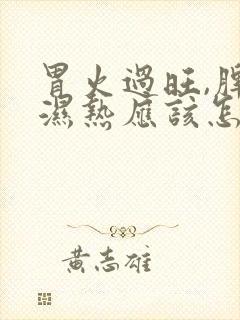 胃火過旺,脾
濕熱應該怎
黃志雄